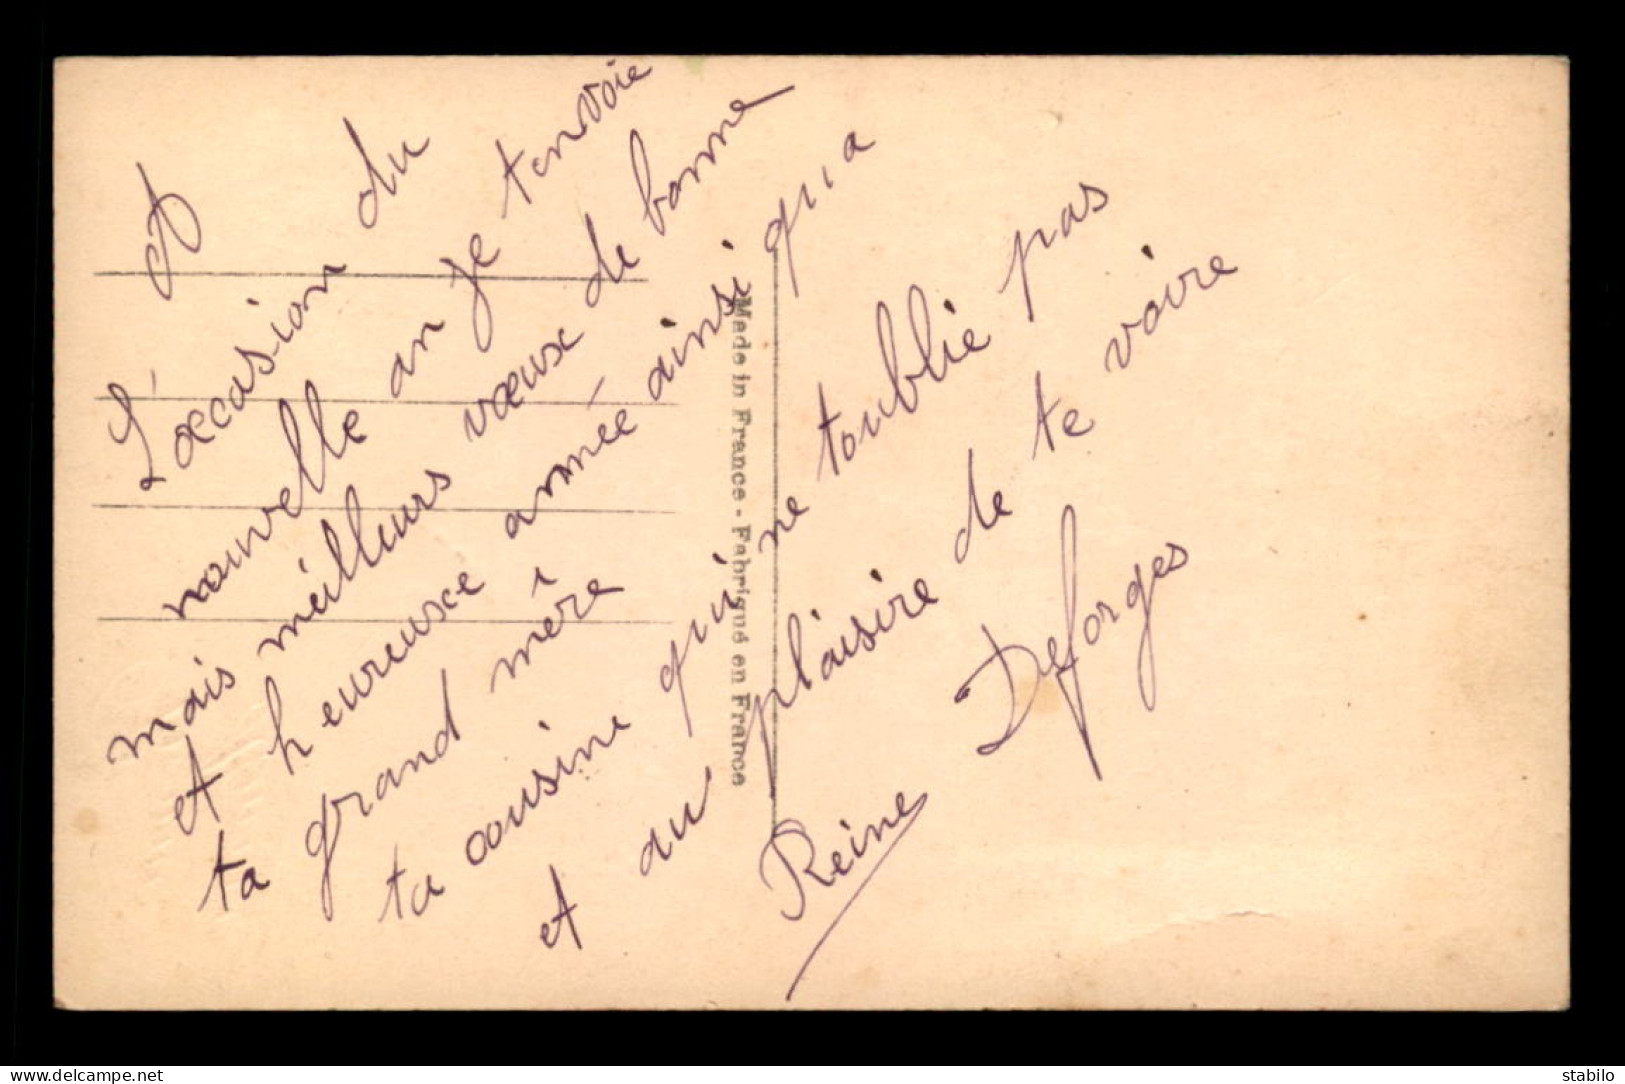 A
L'occasion du
nouvelle an je tenvoie
mais meilleurs vœux de bonne
et heureuse année ainsi qu'a
ta grand mère
ta cousine qui ne toublie pas
et au plaisire de te voire
Reine Deforges
Made in France - Fabriqué en France
delcampe.net
stabilo